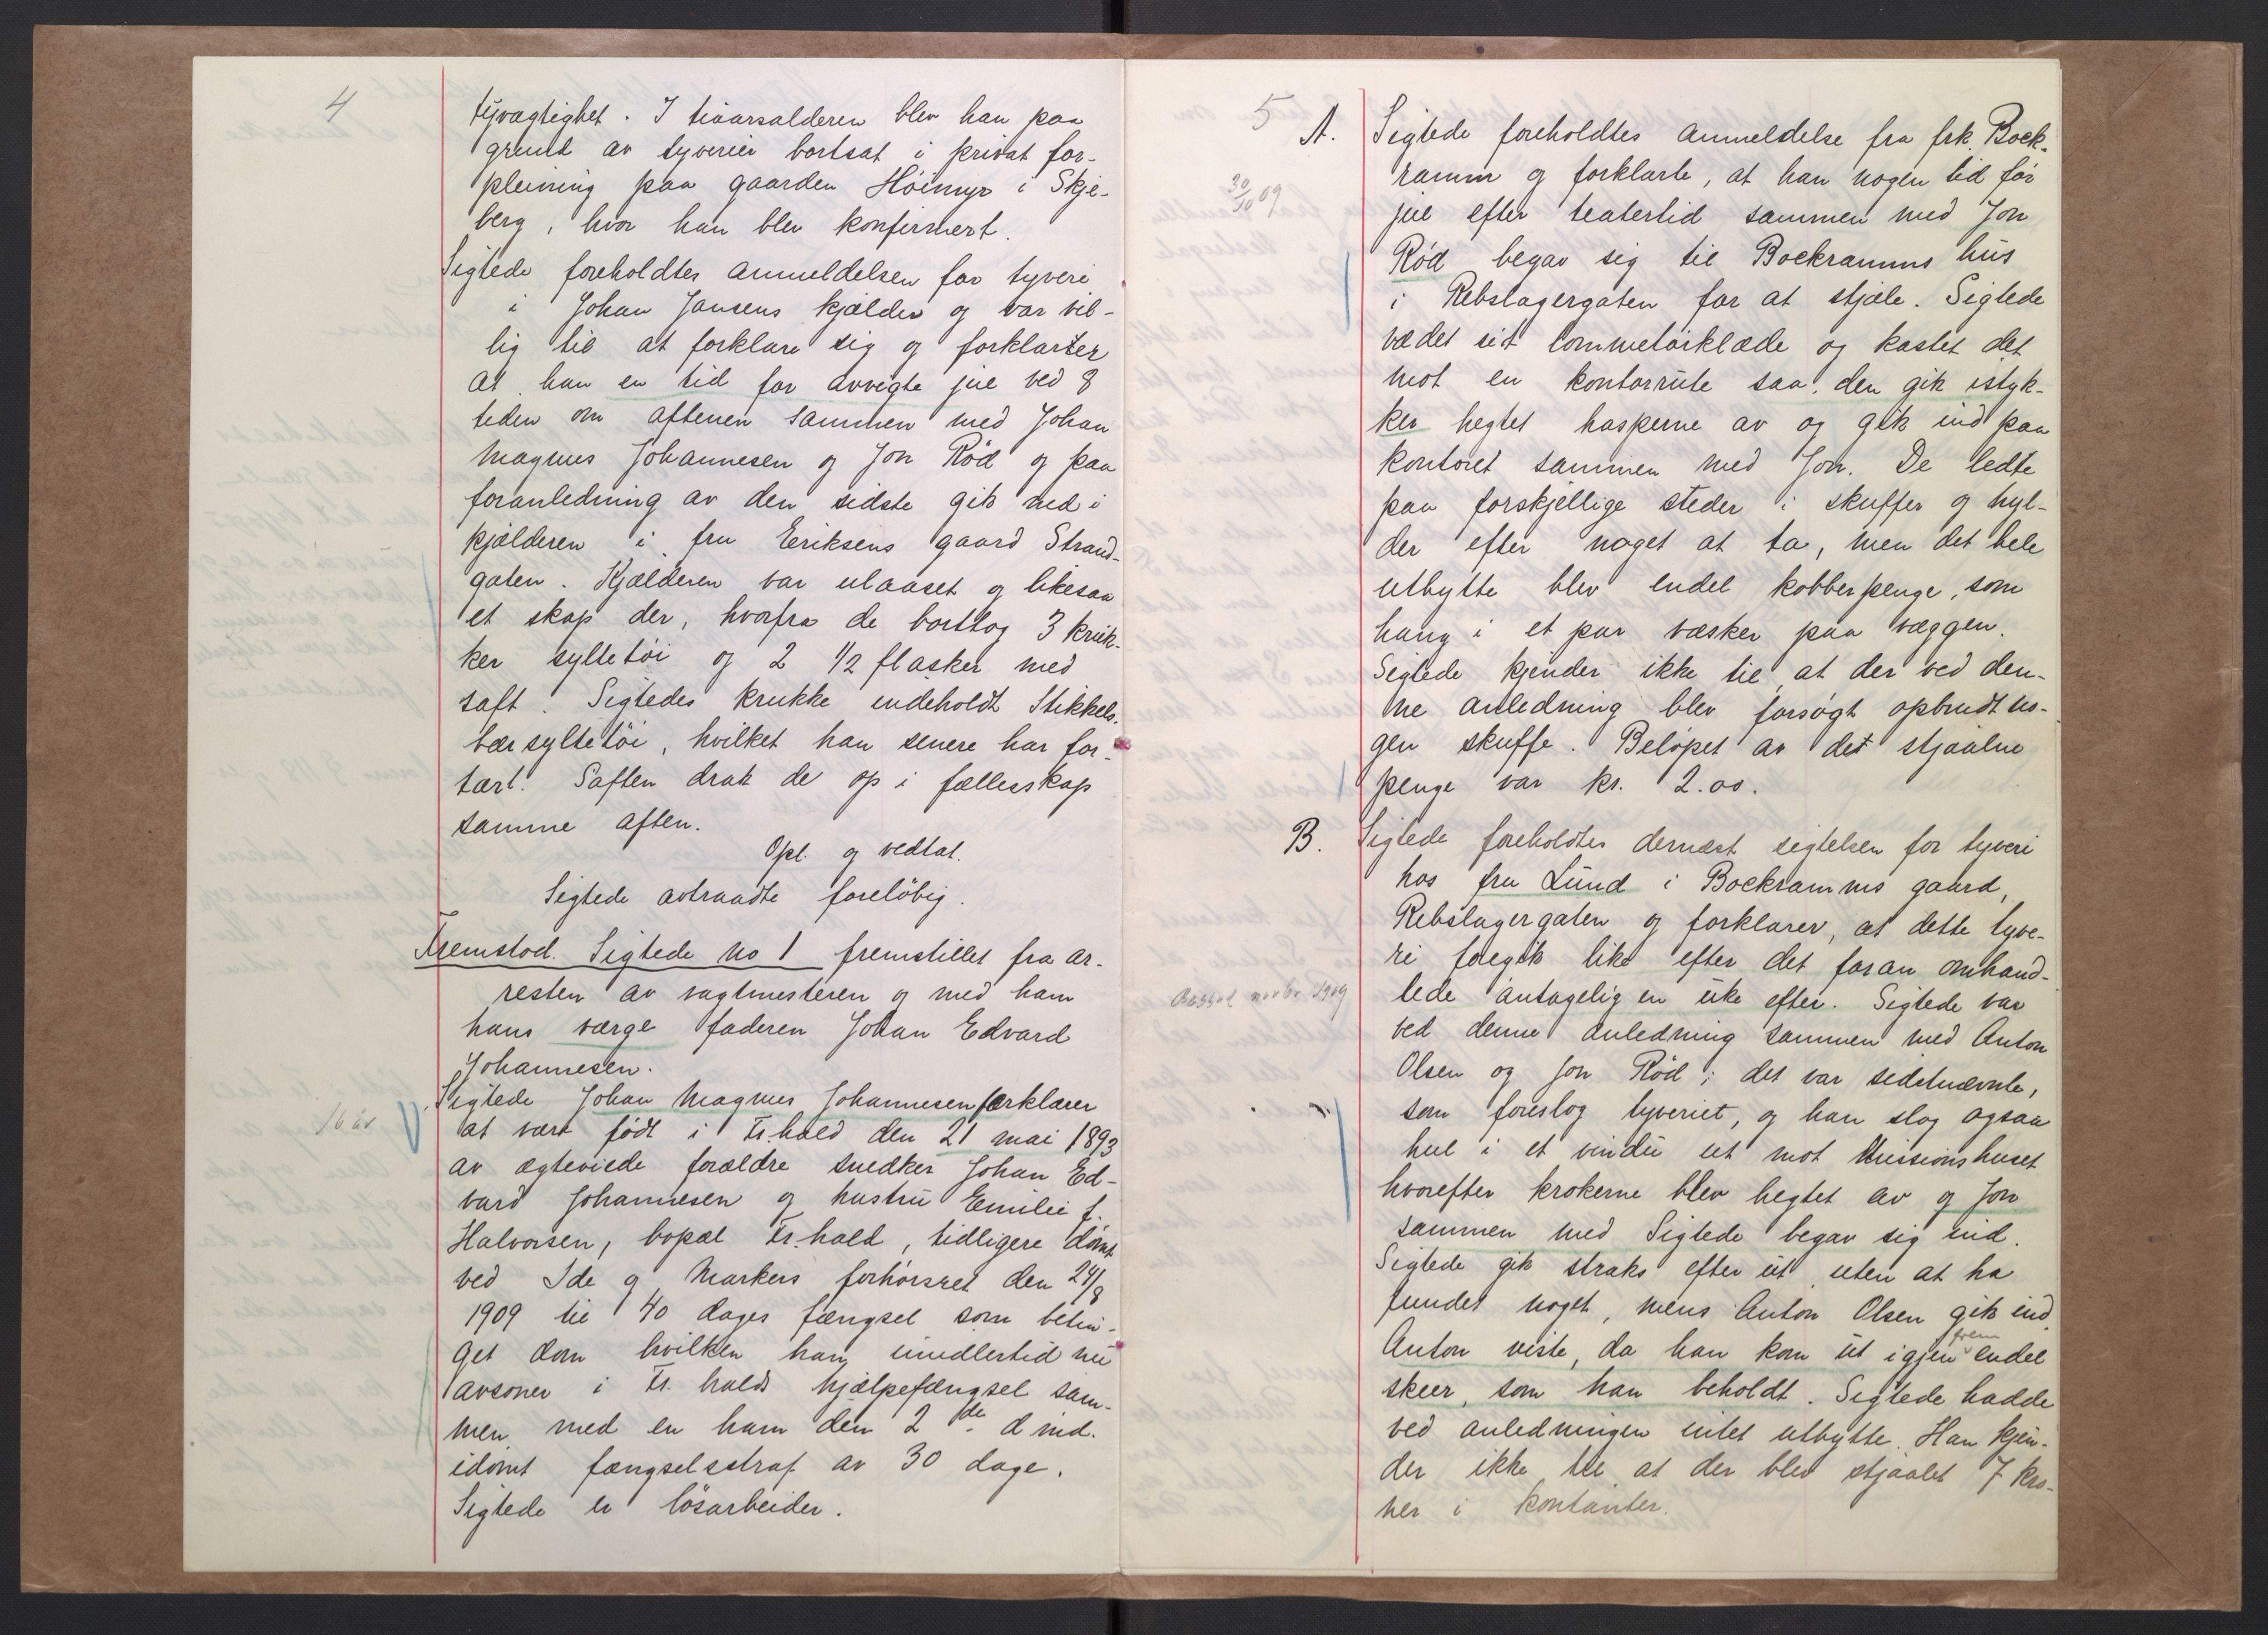 4
tyvagtighet. I tiaarsalderen blev han paa
grund av tyverier bortsat i privat for-
pleining paa gaarden Höimyr i Skje-
berg, hvor han blev konfirmert.
Sigtede foreholdtes anmeldelsen for tyveri
i Johan Jansens kjælder og var vil-
lig til at forklare sig og forklarer
at han en tid før avvigte jul ved 8
tiden om aftenen sammen med Johan
Magnus Johannesen og Jon Rød og paa
foranledning av den sidste gik ned i
kjælderen i fru Eriksens gaard Strand-
gaten. Kjælderen var ulaaset og likesaa
et skap der, hvorfra de borttog 3 kruk-
ker syltetöi og 2 1/2 flasker med
saft. Sigtedes krukke indeholdt Stikkels-
bærsyltetöi, hvilket han senere har for-
tært. Saften drak de op i fællesskap
samme aften.
Opl. og vedtat.
Sigtede avtraadte foreløbig.
Fremstod. Sigtede no 1 fremstillet fra ar-
resten av vagtmesteren og med ham
hans værge faderen Johan Edvard
Johannesen.
Sigtede Johan Magnus Johannesen forklarer
16 år
at være født i Fr.hald den 21 mai 1893
av ægteviede forældre snedker Johan Ed-
vard Johannesen og hustru Emilie f.
Halvorsen, bopæl Fr.hald, tidligere dömt
ved Ide og Markers forhörsret den 24/8
1909 til 40 dages fængsel som betin-
get dom hvilken han imidlertid nu
avsoner i Fr. halds hjælpefængsel sam-
men med en ham den 2de d. md.
idömt fængselsstraf av 30 dage.
Sigtede er lösarbeider.
5
A. Sigtede foreholdtes anmeldelse fra frk. Bock-
ramm og forklarte, at han nogen tid før
30/10 09
jul efter teatertid sammen med Jon
Rød begav sig til Bockramms hus
i Rebslagergaten for at stjæle. Sigtede
vædet sit lommetörklæde og kastet det
mot en kontorrute saa den gik istyk-
ker hegtet hasperne av og gik ind paa
kontoret sammen med Jon. De ledte
paa forskjellige steder i skuffer og hyl-
der efter noget at ta, men det hele
utbytte blev endel kobberpenge, som
hang i et par væsker paa væggen.
Sigtede kjender ikke til at der ved den-
ne anledning blev forsøgt opbrudt no-
gen skuffe. Beløpet av det stjaalne
penge var kr. 2.00.
B. Sigtede foreholdtes dernæst sigtelsen for tyveri
hos fru Lund i Bockramms gaard,
Rebslagergaten og forklarer, at dette tyve-
ri foregik like efter det foran omhand-
novbr. 1909
lede antagelig en uke efter. Sigtede var
ved denne anledning sammen med Anton
Olsen og Jon Rød; det var sidstnævnte,
som foreslog tyveriet, og han slog ogsaa
hul i et vindu ut mot Missionshuset
hvorefter krokerne blev hegtet av og Jon
sammen med Sigtede begav sig ind.
Sigtede gik straks efter ut uten at ha
fundet noget, mens Anton Olsen gik ind.
frem
Anton viste, da han kom ut igjen endel
skeer, som han beholdt. Sigtede hadde
ved anledningen intet utbytte. Han kjen-
der ikke til at der blev stjaalet 7 kro-
ner i kontanter.